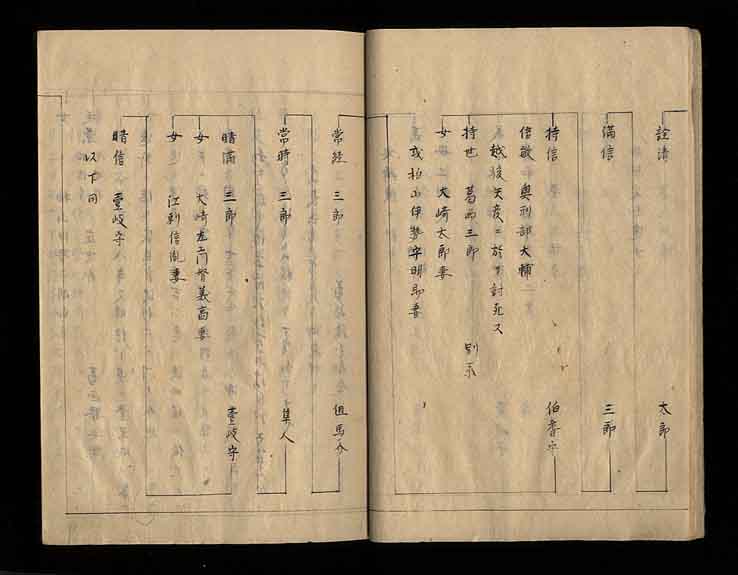 詮清 太郎
満信 三郎
持信 伯耆守
信敬 奥刑部大輔
越後矢度ニ於テ討死ス
持世 葛西三郎 別系
女 大崎太郎妻
或柏山伊勢守明品妻
常経 三郎 但馬介
常時 三郎 隼人
晴満 三郎 壹岐守
女 大崎左エ門督義高妻
女 江刺信胤妻
晴信 壹岐守
以下同